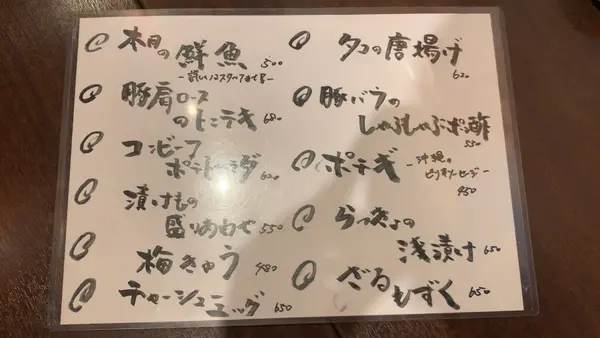 本日の鮮魚 500
-詳しくはスタッフまで-
豚肩ロース
のトンテキ 680
コンビーフ
ポテトサラダ 620
漬けもの
盛りあわせ 550
梅きゅう 480
チャーシューエッグ 650
タコの唐揚げ
620
豚バラの
しゃぶしゃぶポン酢
550
ポテギ -沖縄の
ピリ辛ソーセージ-
450
らっきょの
浅漬け 650
ざる
もずく 650